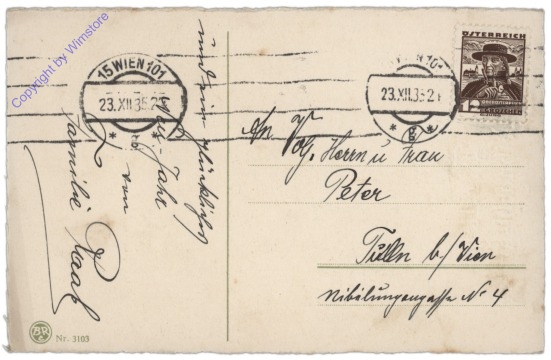 Copyright by Wimstore
und ein glückliches
neues Jahr
von
Familie Raab
15 WIEN 101
23.XII.35 21
* *
15 WIEN 101
23.XII.35 21
* g *
ÖSTERREICH
An
Herrn u Frau
Peter
Tulln b/Wien
Nibelungengasse No 4
BR
Nr. 3103